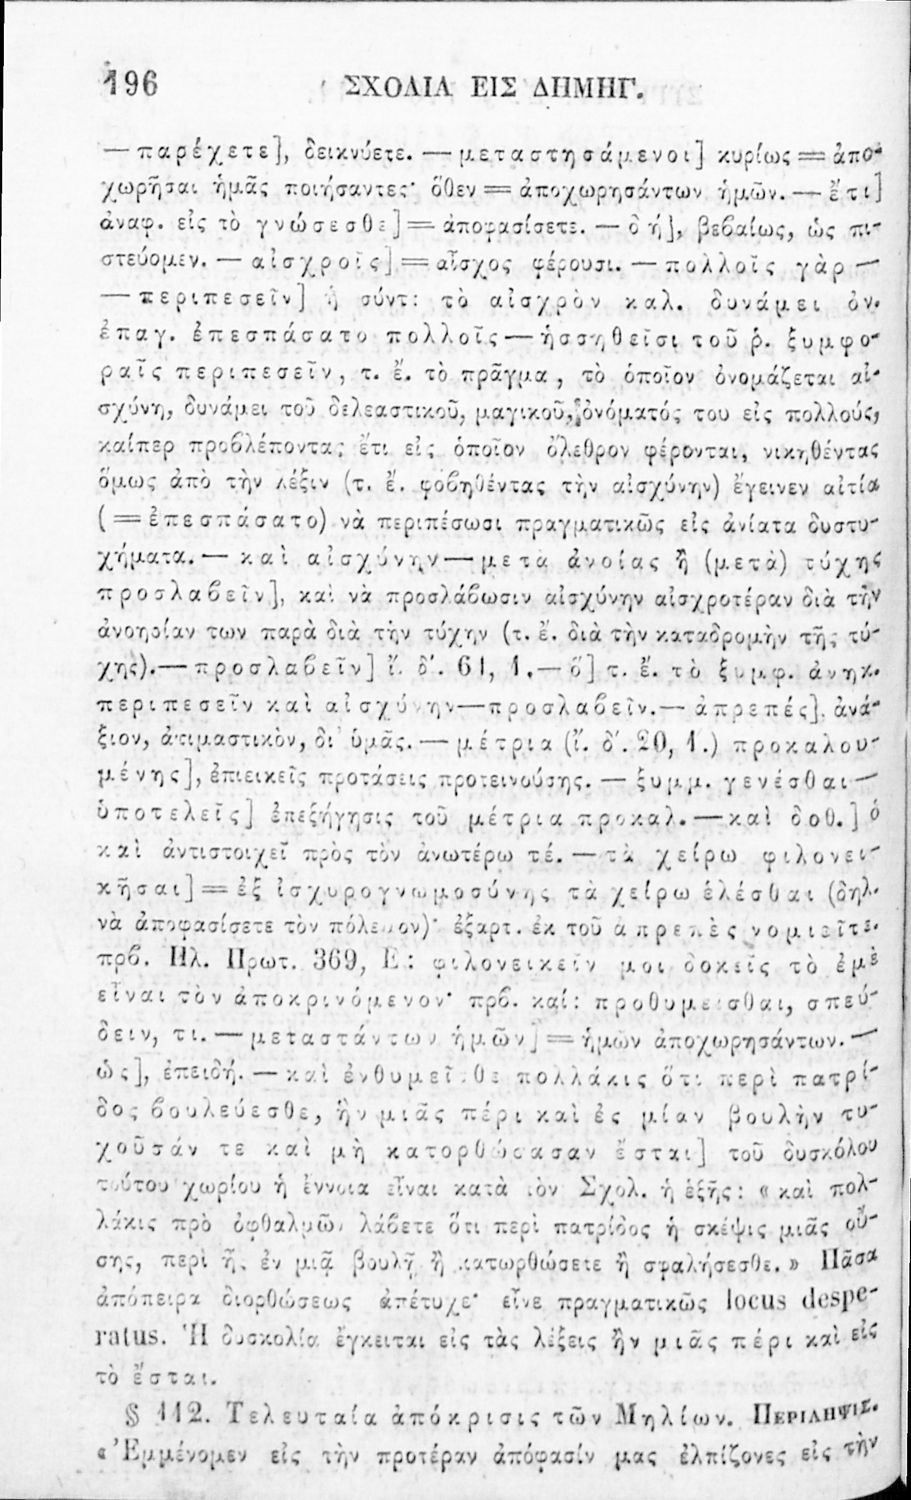 196 ΣΧΟΛΙΑ ΕΙΣ ΔΗΜΗΓ.
— παρέχετε], δεικνύετε. — μεταστησάμενοι] κυρίως = ἀπο-
χωρῆσαι ἡμᾶς ποιήσαντες· ὅθεν = ἀποχωρησάντων ἡμῶν. — ἔτι]
ἀναφ. εἰς τὸ γνώσεσθε] = ἀποφασίσετε. — δή], βεβαίως, ὡς πι-
στεύομεν. — αἰσχροῖς] = αἶσχος φέρουσι. — πολλοῖς γὰρ —
— περιπεσεῖν] ἡ σύντ: τὸ αἰσχρὸν καλ. δυνάμει ὀν.
ἐπαγ. ἐπεσπάσατο πολλοῖς — ἡσσηθεῖσι τοῦ ῥ. ξυμφο-
ραῖς περιπεσεῖν, τ. ἔ. τὸ πρᾶγμα, τὸ ὁποῖον ὀνομάζεται αἰ-
σχύνη, δυνάμει τοῦ δελεαστικοῦ, μαγικοῦ, ὀνόματός του εἰς πολλούς,
καίπερ προβλέποντας ἔτι εἰς ὁποῖον ὄλεθρον φέρονται, νικηθέντας
ὅμως ἀπὸ τὴν λέξιν (τ. ἔ. φοβηθέντας τὴν αἰσχύνην) ἔγεινεν αἰτία
( = ἐπεσπάσατο) νὰ περιπέσωσι πραγματικῶς εἰς ἀνίατα δυστυ-
χήματα. — καὶ αἰσχύνην — μετὰ ἀνοίας ἢ (μετὰ) τύχης
προσλαβεῖν], καὶ νὰ προσλάβωσιν αἰσχύνην αἰσχροτέραν διὰ τὴν
ἀνοησίαν των παρὰ διὰ τὴν τύχην (τ. ἔ. διὰ τὴν καταδρομὴν τῆς τύ-
χης). — προσλαβεῖν] ἴ. δ'. 61, 1. — ὅ] τ. ἔ. τὸ ξυμφ. ἀνηκ.
περιπεσεῖν καὶ αἰσχύνην — προσλαβεῖν. — ἀπρεπές], ἀνά-
ξιον, ἀτιμαστικὸν, δι' ὑμᾶς. — μέτρια (ἴ. δ'. 20, 1.) προκαλου-
μένης], ἐπιεικεῖς προτάσεις προτεινούσης. — ξυμμ. γενέσθαι —
ὑποτελεῖς] ἐπεξήγησις τοῦ μέτρια προκαλ. — καὶ δοθ.] ὁ
καὶ ἀντιστοιχεῖ πρὸς τὸν ἀνωτέρω τέ. — τὰ χείρω φιλονει-
κῆσαι] = ἐξ ἰσχυρογνωμοσύνης τὰ χείρω ἑλέσθαι (δηλ.
νὰ ἀποφασίσετε τὸν πόλεμον)· ἐξαρτ. ἐκ τοῦ ἀπρεπὲς νομιεῖτε.
πρβ. Πλ. Πρωτ. 369, Ε: φιλονεικεῖν μοι δοκεῖς τὸ ἐμὲ
εἶναι τὸν ἀποκρινόμενον· πρβ. καί: προθυμεῖσθαι, σπεύ-
δειν, τι. — μεταστάντων ἡμῶν] = ἡμῶν ἀποχωρησάντων. —
ὡς], ἐπειδή. — καὶ ἐνθυμεῖσθε πολλάκις ὅτι περὶ πατρί-
δος βουλεύεσθε, ἣν μιᾶς πέρι καὶ ἐς μίαν βουλὴν τυ-
χοῦσάν τε καὶ μὴ κατορθώσασαν ἔσται] τοῦ δυσκόλου
τούτου χωρίου ἡ ἔννοια εἶναι κατὰ τὸν Σχολ. ἡ ἑξῆς: « καὶ πολ-
λάκις πρὸ ὀφθαλμῶν λάβετε ὅτι περὶ πατρίδος ἡ σκέψις μιᾶς οὔ-
σης, περὶ ἧς ἐν μιᾷ βουλῇ ἢ κατωρθώσετε ἢ σφαλήσεσθε. » Πᾶσα
ἀπόπειρα διορθώσεως ἀπέτυχε· εἶνε πραγματικῶς locus despe-
ratus. Ἡ δυσκολία ἔγκειται εἰς τὰς λέξεις ἣν μιᾶς πέρι καὶ εἰς
τὸ ἔσται.
§ 112. Τελευταία ἀπόκρισις τῶν Μηλίων. ΠΕΡΙΛΗΨΙΣ.
« Ἐμμένομεν εἰς τὴν προτέραν ἀπόφασίν μας ἐλπίζονες εἰς τὴν